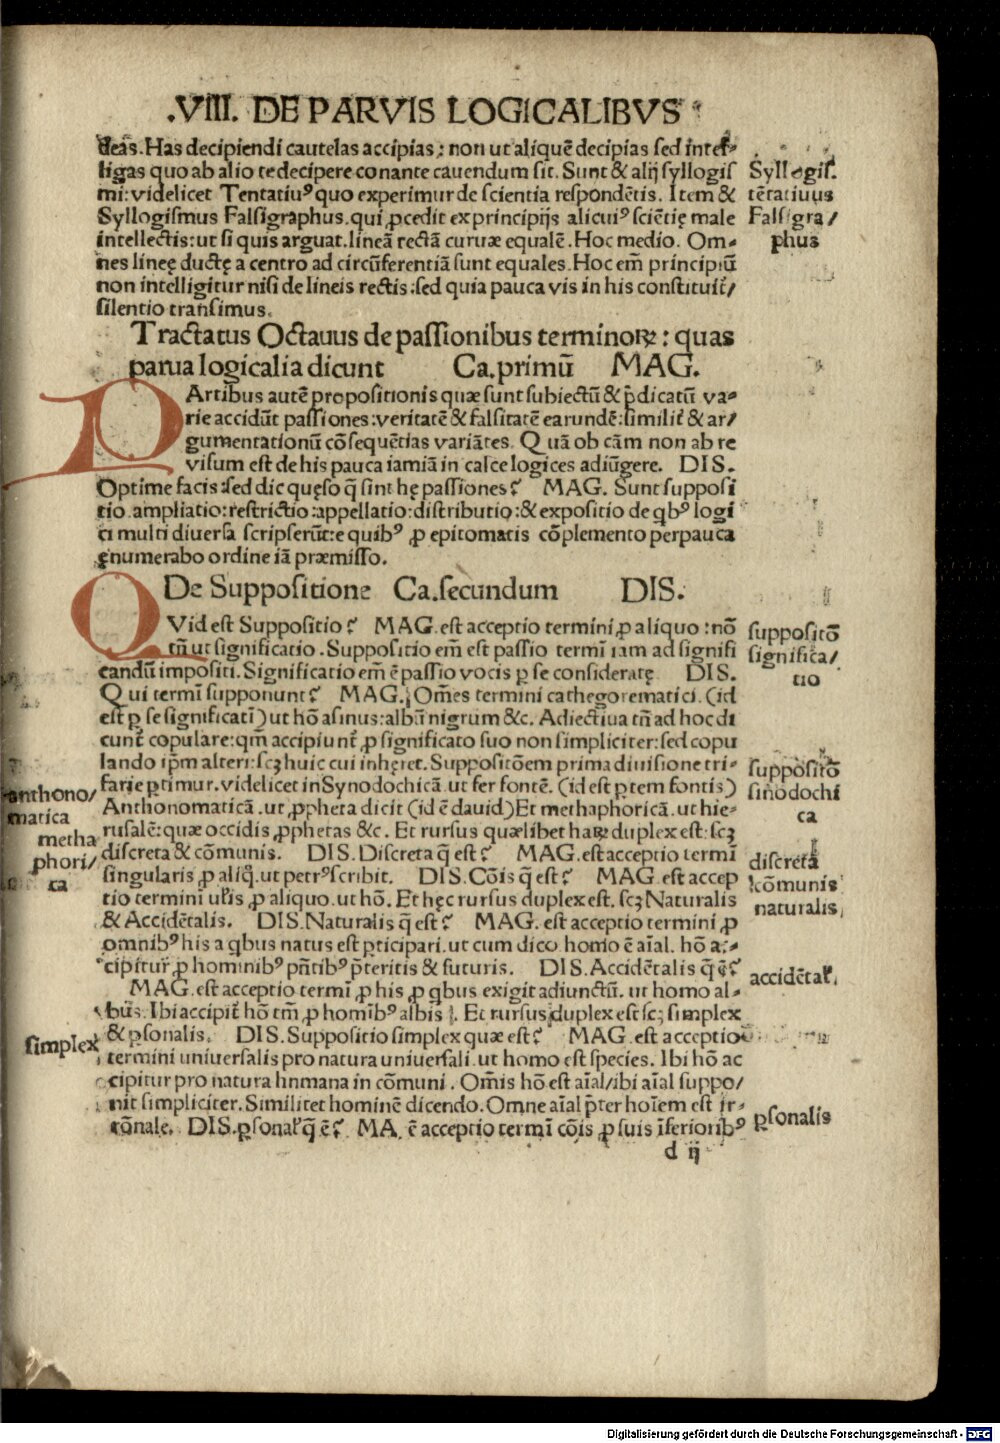 .VIII. DE PARVIS LOGICALIBVS
deas. Has decipiendi cautelas accipias: non ut aliquē decipias sed intel-
ligas quo ab alio te decipere conante cauendum sit. Sunt & alij syllogis
mi: videlicet Tentatiuꝰ quo experimur de scientia respondētis. Item &
Syllogismus Falsigraphus. qui ꝓcedit ex principijs alicuiꝰ sciētię male
intellectis: ut si quis arguat. lineā rectā curuæ equalē. Hoc medio. Om-
nes lineę ductę a centro ad circūferentiā sunt equales. Hoc em̄ principiū
non intelligitur nisi de lineis rectis: sed quia pauca vis in his constituit̄/
silentio transimus.
Syllogis.
tētatiuus
Falsigra/
phus
Tractatus Octauus de passionibus terminoꝝ: quas
parua logicalia dicunt Ca. primū MAG.
PArtibus autē propositionis quæ sunt subiectū & p̄dicatū va-
rie accidūt passiones: veritatē & falsitatē earundē: similit̄ & ar/
gumentationū cōsequētias variātes. Quā ob cām non ab re
visum est de his pauca iamiā in calce logices adiūgere. DIS.
Optime facis: sed dic quęso q̄ sint hę passiones? MAG. Sunt supposi
tio. ampliatio: restrictio: appellatio: distributio: & expositio de qbꝰ logi
ci multi diuersa scripserūt: e quibꝰ ꝓ epitomatis cōplemento perpauca
enumerabo ordine iā præmisso.
De Suppositione Ca. secundum DIS.
QVid est Suppositio? MAG. est acceptio termini ꝓ aliquo: nō
tn̄ ut significatio. Suppositio em̄ est passio termī iam ad signifi
candū impositi. Significatio em̄ ē passio vocis ꝑ se consideratę DIS.
Qui termī supponunt? MAG. Om̄es termini cathegorematici. (id
est ꝑ se significatī) ut hō asinus: albū nigrum &c. Adiectiua tn̄ ad hoc di
cunt̄ copulare: qm̄ accipiunt̄ ꝓ significato suo non simpliciter: sed copu
lando ip̄m alteri: scꝫ huic cui inhęret. Suppositōem prima diuisione tri-
farie ꝑtimur. videlicet in Synodochicā. ut fer fontē. (id est ꝑtem fontis)
Anthonomaticā. ut ꝓpheta dicit (id ē dauid) Et methaphoricā. ut hie-
rusalē: quæ occidis ꝓphetas &c. Et rursus quælibet haꝝ duplex est: scꝫ
discreta & cōmunis. DIS. Discreta q̄ est? MAG. est acceptio termī
singularis ꝓ aliq̄. ut petrꝰ scribit. DIS. Cōis q̄ est? MAG. est accep
tio termini ul̄is ꝓ aliquo. ut hō. Et hęc rursus duplex est. scꝫ Naturalis
& Accidētalis. DIS. Naturalis q̄ est? MAG. est acceptio termini ꝓ
omnibꝰ his a qbus natus est ꝑticipari. ut cum dico homo ē aīal. hō ac-
cipitur ꝓ hominibꝰ pn̄tibꝰ p̄teritis & futuris. DIS. Accidētalis q̄ ē?
MAG. est acceptio termī ꝓ his ꝓ qbus exigit adiunctū. ut homo al-
bus. Ibi accipit̄ hō tm̄ ꝓ homībꝰ albis. Et rursus duplex est scꝫ simplex
& ꝑsonalis. DIS. Suppositio simplex quæ est? MAG. est acceptio
termini uniuersalis pro natura uniuersali. ut homo est species. Ibi hō ac
cipitur pro natura hnmana in cōmuni. Om̄is hō est aīal/ ibi aīal suppo/
nit simpliciter. Similiter hominē dicendo. Omne aīal p̄ter hoīem est ir-
rōnale. DIS. ꝑsonal' q̄ ē? MA. ē acceptio termī cōis ꝓ suis īferioribꝰ
suppositō
significa/
tio
suppositō
sinodochi
ca
anthono/
matica
metha
phori/
ca
discreta
cōmunis
naturalis.
accidētal'.
simplex
ꝑsonalis
d ij
Digitalisierung gefördert durch die Deutsche Forschungsgemeinschaft - DFG